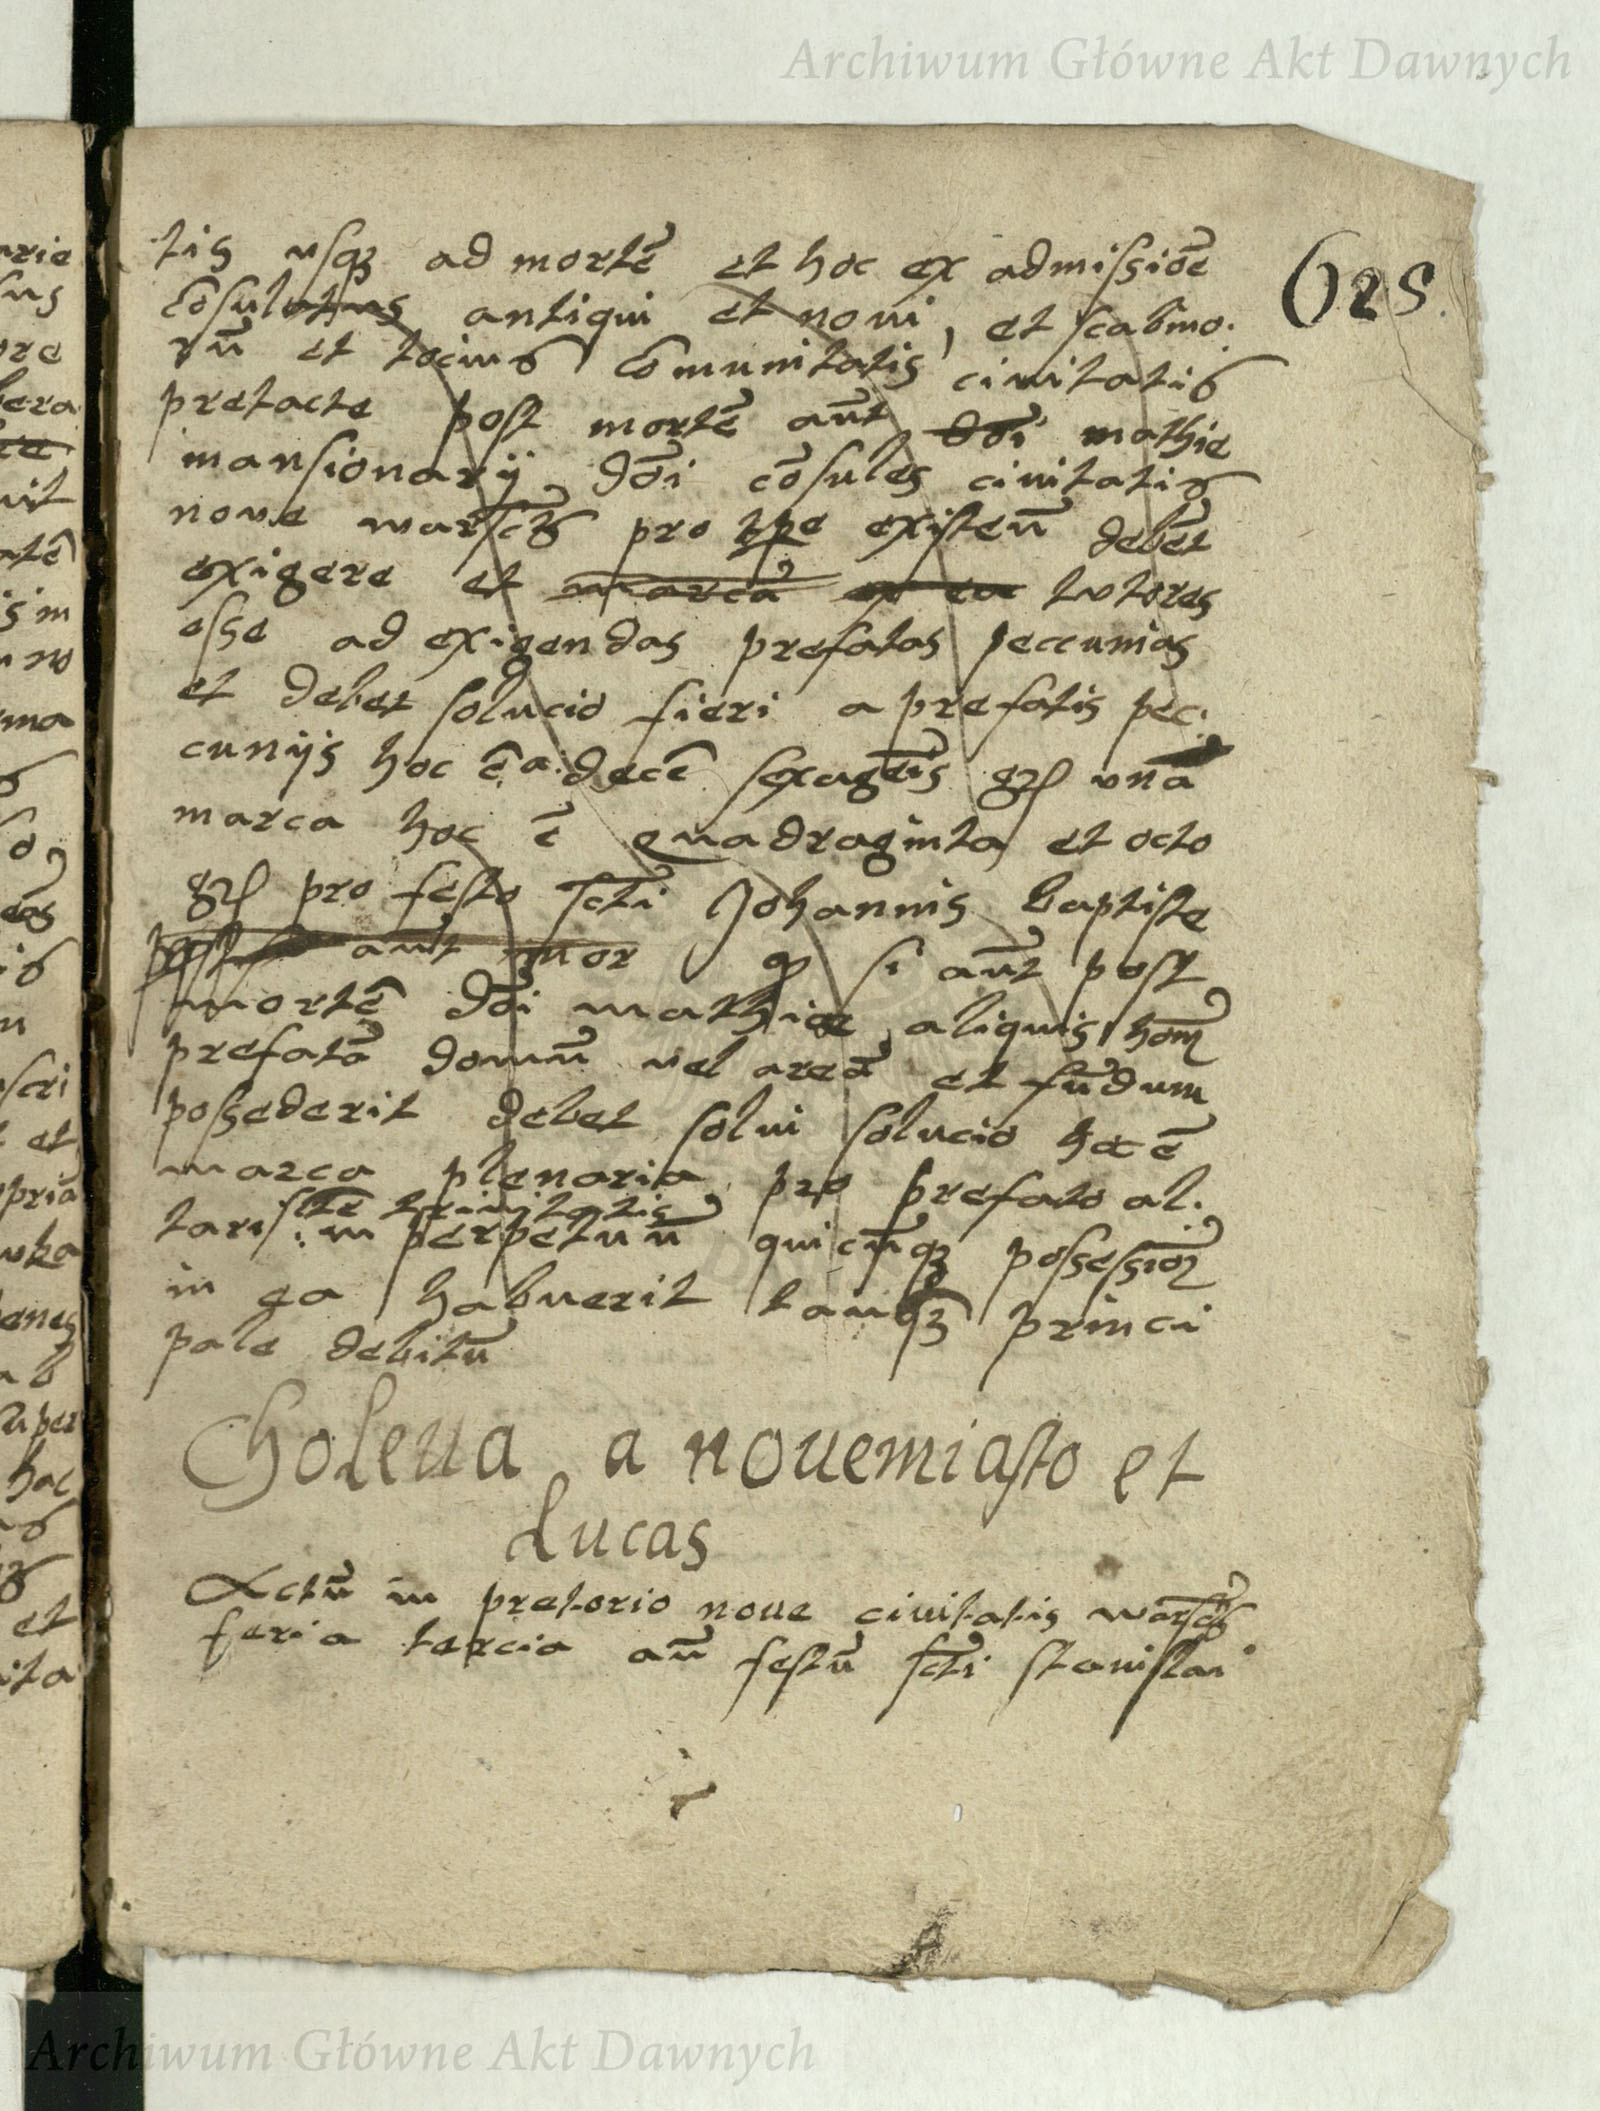 Archiwum Główne Akt Dawnych
625
tis usq₃ ad mortē et hoc ex admissiōe
cōsulatus antiqui et noui, et scabino.
rū et tocius cōmunitatis ciuitatis
pretacte post mortē aūt dōi mathie
mansionarij dōi cōsules ciuitatis
noue warsch pro tp̄e existeñ debēt
exigere et marcā ex ea tutores
esse ad exigendas prefatas peccunias
et debet solucio fieri a prefatis pec:
cunijs hoc ē a decē sexagēis grs una
marca hoc ē quadraginta et octo
grs pro festo sct̄i Johannis baptiste
post aūt mor si aūt post
mortē dōi mathie aliquis hom̄
prefatā domū uel areā et fūdum
possederit debet solui solucio hoc ē
marca plenaria pro prefato al.
scte trinitatis
taris: in perpetuū quicūq₃ possessioē
in ea habuerit tanq₃ princi
pale debitū
Choleua a nouemiasto et
Lucas
Actū in pretorio noue ciuitatis warsch
feria tercia añ festū sct̄i stanislai
Archiwum Główne Akt Dawnych